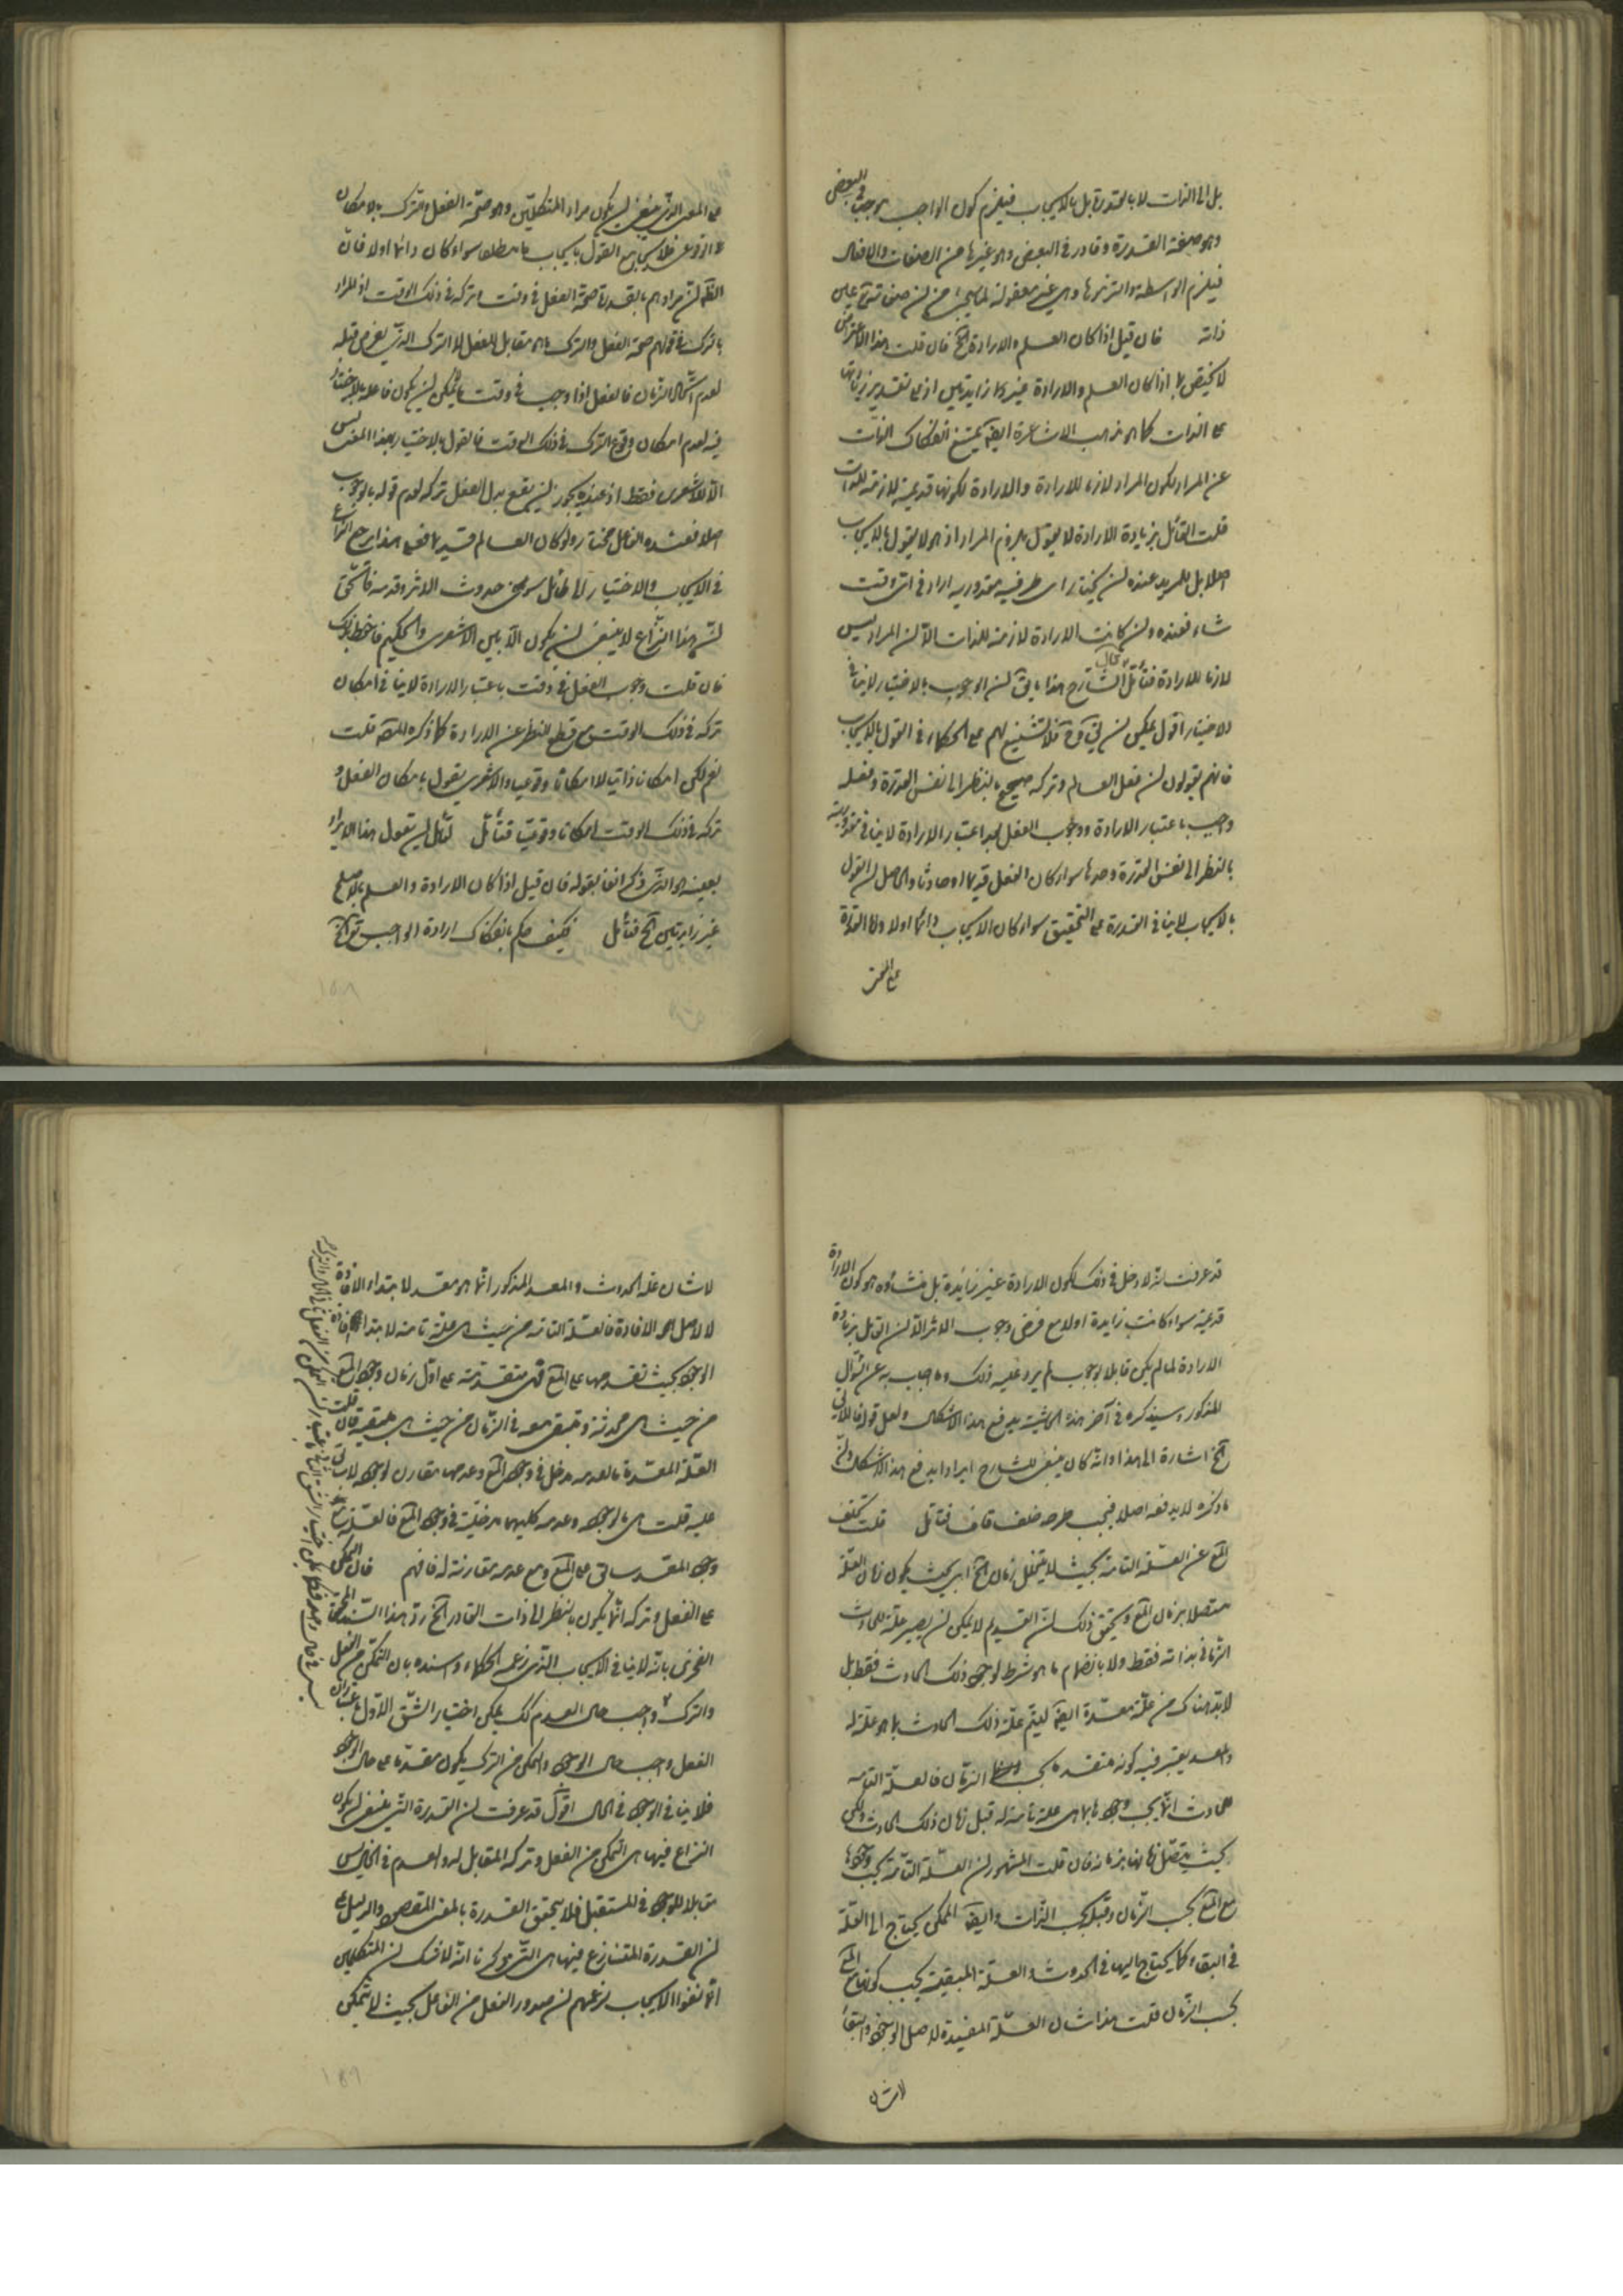 بل الى الذات لا بالقدرة بل بالايجاب فيلزم كون الواجب موجبا في البعض
وهو صفة القدرة وقادر في البعض وهو غيرها من الصفات والافعال
فيلزم الواسطة والتزمها وهى غير معقولة لما سيجئ من ان صفاته تع عين
ذاته فان قيل اذا كان العلم والارادة الخ فان قلت هذا الاعتراض
لا يختص بما اذا كان العلم والارادة غير زايدتين اذ على تقدير زيادتها
على الذات كما هو مذهب الاشاعرة ايضا يمتنع انفكاك الذات
عن المراد لكون المراد لازما للارادة والارادة لكونها قديمة لازمة للذات
قلت القائل بزيادة الارادة لا يقول بلزوم المراد اذ هو لا يقول بالايجاب
اصلا بل للمريد عنده ان يختار اى طرفى مقدوريه اراد في اى وقت
شاء فعنده وان كانت الارادة لازمة للذات الا ان المراد ليس
لازما للارادة فتأمل قال الشارح هذا ما يق ان الوجوب بالاختيار لا ينافى
الاختيار اقول يمكن ان يق فح فلا تشنيع لهم على الحكماء في القول بالايجاب
فانهم يقولون ان فعل العالم وتركه صحيح بالنظر الى نفس القدرة وفعله
واجب باعتبار الارادة ووجوب الفعل بعد اعتبار الارادة لا ينافى مقدوريته
بالنظر الى نفس القدرة وحدها سواء كان الفعل قديما او حادثا والحاصل ان القول
بالايجاب لا ينافى القدرة على التحقيق سواء كان الايجاب دائما او لا واما القدرة
على المعنى
على المعنى الذى ينبغى ان يكون مراد المتكلمين وهو صحة الفعل والترك بالامكان
الوقوعى فلا يجامع القول بايجاب ما مطلقا سواء كان دائما او لا فان
الظ ان مرادهم بالقدرة صحة الفعل في وقت وتركه في ذلك الوقت اذ المراد
بالترك في قولهم صحة الفعل والترك ما هو مقابل للفعل لا الترك الذى يفرض قبله
لعدم الزمان فالفعل اذا وجب في وقت ما لم يمكن ان يكون فاعله بالاختيار
فيه لعدم امكان وقوع الترك في ذلك الوقت فالقول بالاختيار بهذا المعنى ليس
الا للاشعرى فقط اذ عنده يجوز ان يقع بدل الفعل تركه لعدم قوله بالوجوب
اصلا فعنده الفاعل مختار ولو كان العالم قديما فعلى هذا يرجع النزاع
في الايجاب والاختيار الى طائل سوى حدوث الاثر وقدمه
ان هذا النزاع لا ينبغى ان يكون الا بين الاشعرى والحكيم فاحفظ ذلك
فان قلت وجوب الفعل في وقت باعتبار الارادة لا ينافى امكان
تركه في ذلك الوقت مع قطع النظر عن الارادة كما ذكره المص قلت
نعم لكن امكانا ذاتيا لا امكانا وقوعيا والاشعرى يقول بامكان الفعل و
تركه في ذلك الوقت امكانا وقوعيا فتأمل لقائل ان يقول هذا الايراد
بعينه هو الذى ذكر انفا بقوله فان قيل اذا كان الارادة والعلم بالاصلح
غير زايدتين الخ فتأمل فكيف حكم بانفكاك ارادة الواجب تع الخ
قد عرفت انه لا دخل في ذلك لكون الارادة غير زايدة بل منشاؤه هو كون الارادة
قديمة سواء كانت زايدة او لا مع فرض وجوب الاثر الا ان القائل بزيادة
الارادة لما لم يكن قائلا بوجوب لم يرد عليه ذلك وما اجاب به عن السؤال
المذكور وسيذكره في آخر هذه الحاشية يدفع هذا الاشكال ولعل قوله فالاولى
الخ اشارة الى هذا وانه كان ينبغى للشارح ايراد ما يدفع هذا الاشكال وان
ما ذكره لا يدفعه اصلا فيجب طرحه خلف قاف فتأمل قلت تخلف
المع عن العلة التامة بحيث لا يتخلل زمان الخ اى بحيث يكون زمان العلة
متصلا بزمان المع وتحقيق ذلك ان القديم لا يمكن ان يصير علة للحادث
الزمانى بذاته فقط ولا بانضمام ما هو شرط لوجود ذلك الحادث فقط بل
لابد هناك من علة معدة ايضا ليتم علة ذلك الحادث بما هو علة له
والمعد يعتبر فيه كونه متقدما بحسب الزمان فالعلة التامة
للحادث انما يجب وجودها بما هى علة تامة له قبل زمان ذلك الحادث ولكن
بحيث يتصل زمانها بزمانه فان قلت المشهور ان العلة التامة يجب وجودها
مع المع بحسب الزمان وقبله بحسب الذات وايضا الممكن يحتاج الى العلة
في البقاء كما يحتاج اليها في الحدوث والعلة المبقية يجب كونها مع المع
بحسب الزمان قلت هذا شان العلة المفيدة لاصل الوجود والبقاء
لا شان
لا شان علة الحدوث والمعد المذكور انما هو معد لابتداء الافادة
لا لاصل الافادة فالعلة التامة من حيث هى علة تامة لابتداء افادة
الوجود يجب تقدمها على المع فهى متقدمة على اول زمان وجود المع
من حيث هى محدثة وتبقى معه في الزمان من حيث هى مبقية فان قلت
العلة المعدة لعدمه مدخل في وجود المع وعدمها مقارن لوجوده لا سابق
عليه قلت بل لوجوده وعدمه كليهما مدخلية في وجود المع فالعلة مع
وجود المعد سابق على المع ومع عدمه مقارنة له فافهم فان التمكن
على الفعل وتركه انما يكون بالنظر الى ذات القادر الخ رد هذا السند المحقق
الفخرى بانه لا ينافى الايجاب الذى زعمه الحكماء واسنده بان التمكن من الفعل
والترك واجب حال العدم لكن يمكن اختيار الشق الاول باعتبار ان
الفعل واجب حال الوجود والتمكن من الترك يكون مقدما على حال الوجود
فلا ينافى الوجود في الحال اقول قد عرفت ان القدرة التى ينبغى ان يكون
النزاع فيها هى التمكن من الفعل وتركه المقابل له والعدم في الحال ليس
مقابلا للوجود في المستقبل فلا يتحقق القدرة بالمعنى المقصود والدليل على
ان القدرة المتنازع فيها هى التى ذكرنا انه لا شك ان المتكلمين
انما نفوا الايجاب لزعمهم ان صدور الفعل من الفاعل بحيث لا يتمكن